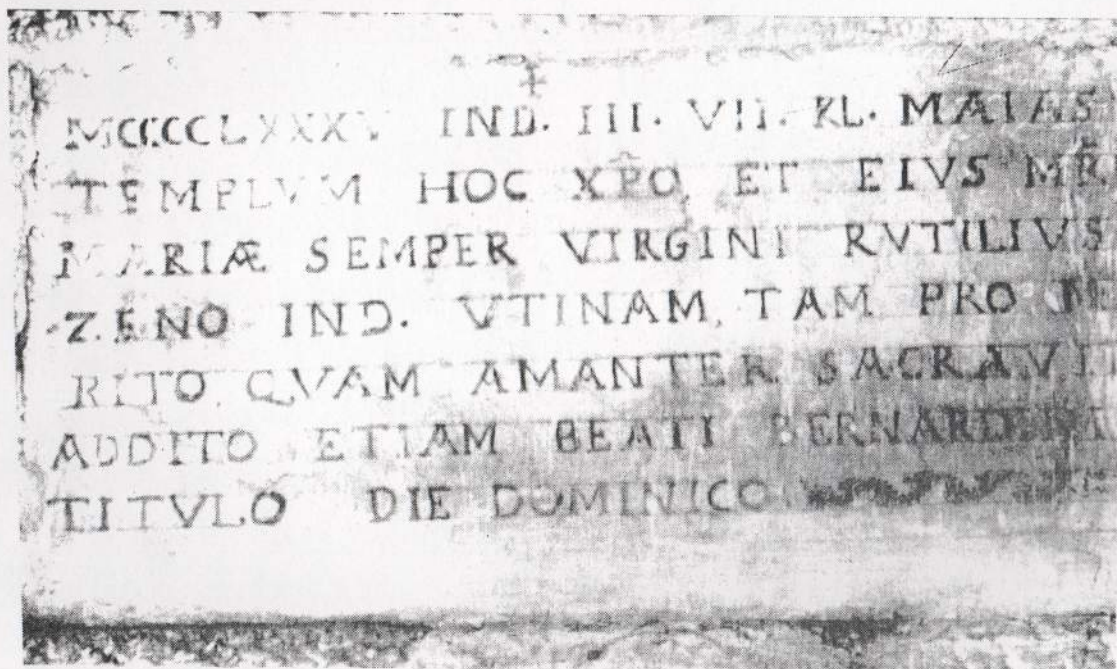 MCCCCLXXXV IND. III. VII. KL. MAIAS
TEMPLVM HOC XPO ET EIVS MR̄I
MARIÆ SEMPER VIRGINI RVTILIVS
ZENO IND. VTINAM, TAM PRO ME
RITO, QVAM AMANTER SACRAVIT
ADDITO ETIAM BEATI BERNARDINI
TITVLO DIE DOMINICO